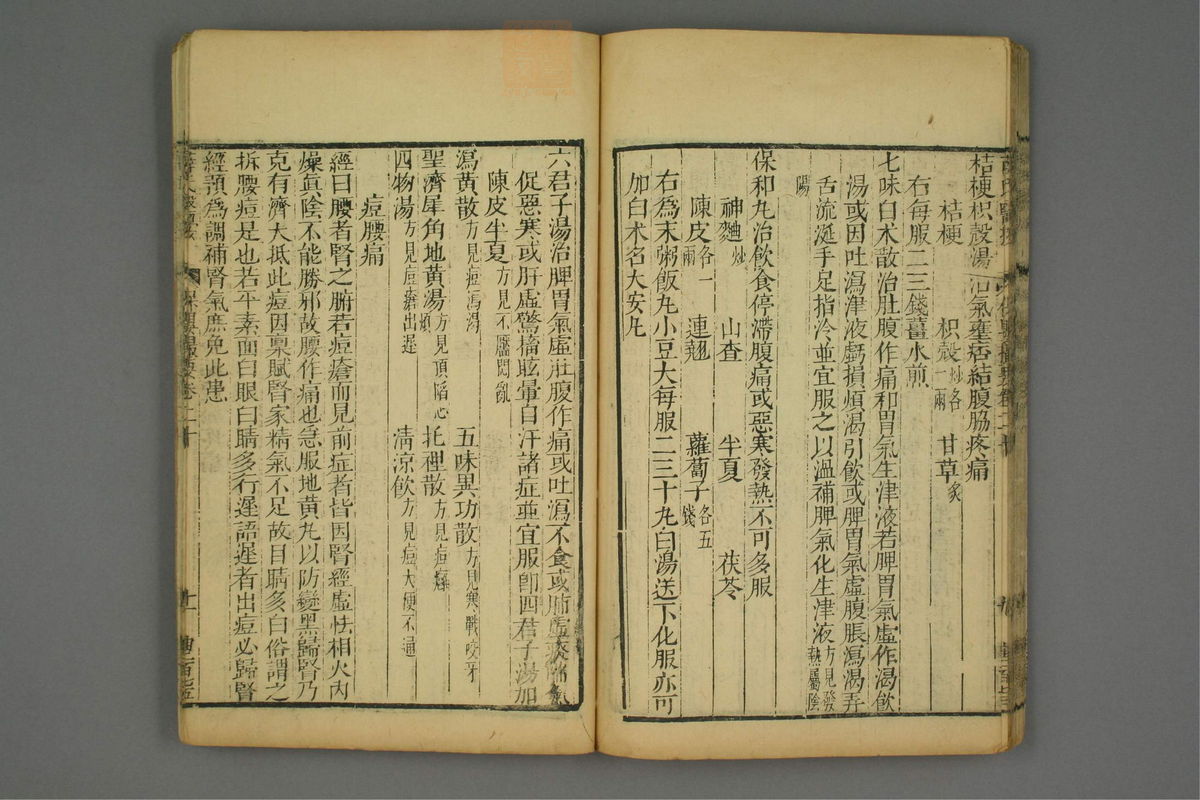 桔梗枳殼湯治氣壅痞結腹脇疼痛
桔梗 枳殼炒各一兩 甘草炙
右每服二三錢薑水煎
七味白术散治肚腹作痛和胃氣生津液若脾胃氣虛作渴飲
湯或因吐瀉津液虧損煩渴引飲或脾胃氣虛腹脹瀉渴弄
舌流涎手足指冷並宜服之以溫補脾氣化生津液方見發熱屬陰
陽
保和丸治飲食停滯腹痛或惡寒發熱不可多服
神麯炒 山查 半夏 茯苓
陳皮各一兩 連翹 蘿蔔子各五錢
右為末粥飯丸小豆大每服二三十丸白湯送下化服亦可
加白术名大安丸
六君子湯治脾胃氣虛肚腹作痛或吐瀉不食或肺虛痰喘氣
促惡寒或肝虛驚搐眩暈自汗諸症並宜服卽四君子湯加
陳皮半夏方見不靨悶亂
瀉黃散方見痘瀉渴 五味異功散方見寒戰咬牙
聖濟犀角地黃湯方見頂陷心煩 托裡散方見痘癰
四物湯方見痘瘡出遲 清涼飲方見痘大便不通
痘腰痛
經曰腰者腎之腑若痘瘡而見前症者皆因腎經虛怯相火內
燥眞陰不能勝邪故腰作痛也急服地黃丸以防變黑歸腎乃
克有濟大抵此痘因稟賦腎家精氣不足故目睛多白俗謂之
拆腰痘是也若平素面白眼白睛多行遲語遲者出痘必歸腎
經預為調補腎氣庶免此患
保嬰撮要卷二十